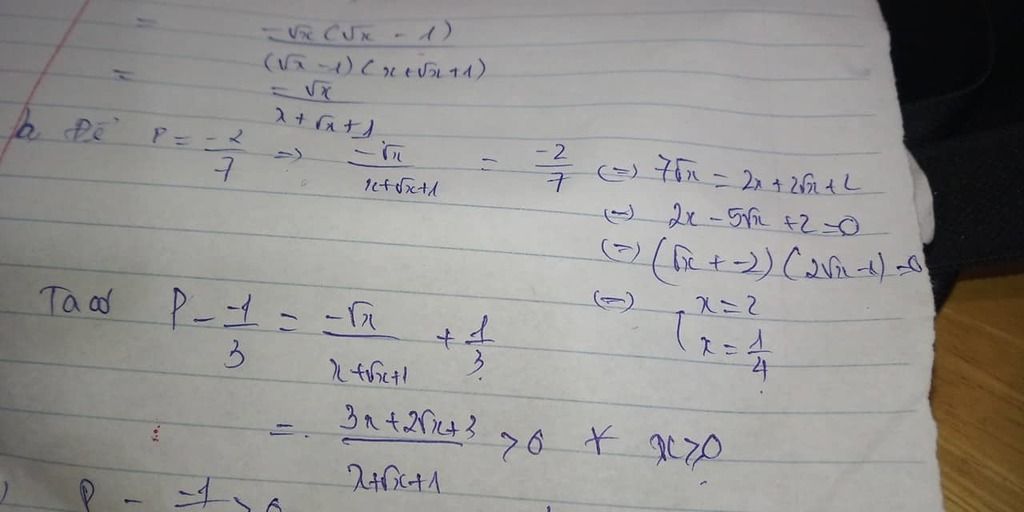 = -√x(√x - 1)
(√x - 1)(x+√x+1)
= -√x
x+√x+1
b Để P = -2/7 => -√x/(x+√x+1) = -2/7 (=) 7√x = 2x+2√x+2
(=) 2x-5√x+2=0
(=) (√x+-2)(2√x-1)=0
(=) [x=2
x=1/4
Ta có P - -1/3 = -√x/(x+√x+1) + 1/3
= 3x+2√x+3/(x+√x+1) >0 ∀ x≥0
P - -1 > 0